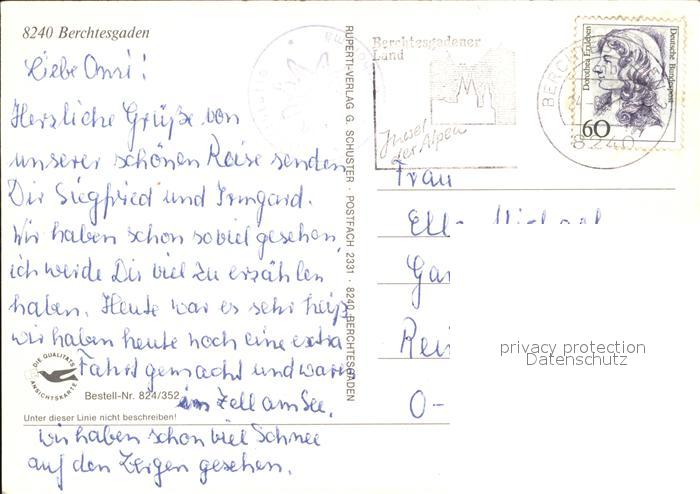 8240 Berchtesgaden
Liebe Omi!
Herzliche Grüße von
unserer schönen Reise senden
Dir Siegfried und Irmgard.
Wir haben schon soviel gesehen,
ich werde Dir viel zu erzählen
haben. Heute war es sehr heiß,
wir haben heute noch eine extra
Fahrt gemacht und waren
im Zell am See,
wir haben schon viel Schnee
auf den Bergen gesehen.
DIE QUALITÄTS
ANSICHTSKARTE
Bestell-Nr. 824/352
Unter dieser Linie nicht beschreiben!
RUPERTI-VERLAG G. SCHUSTER · POSTFACH 2331 · 8240 BERCHTESGADEN
Berchtesgadener
Land
Insel
der Alpen
8240
Dorothea Erxleben
Deutsche Bundespost
60
Frau
O-
privacy protection
Datenschutz